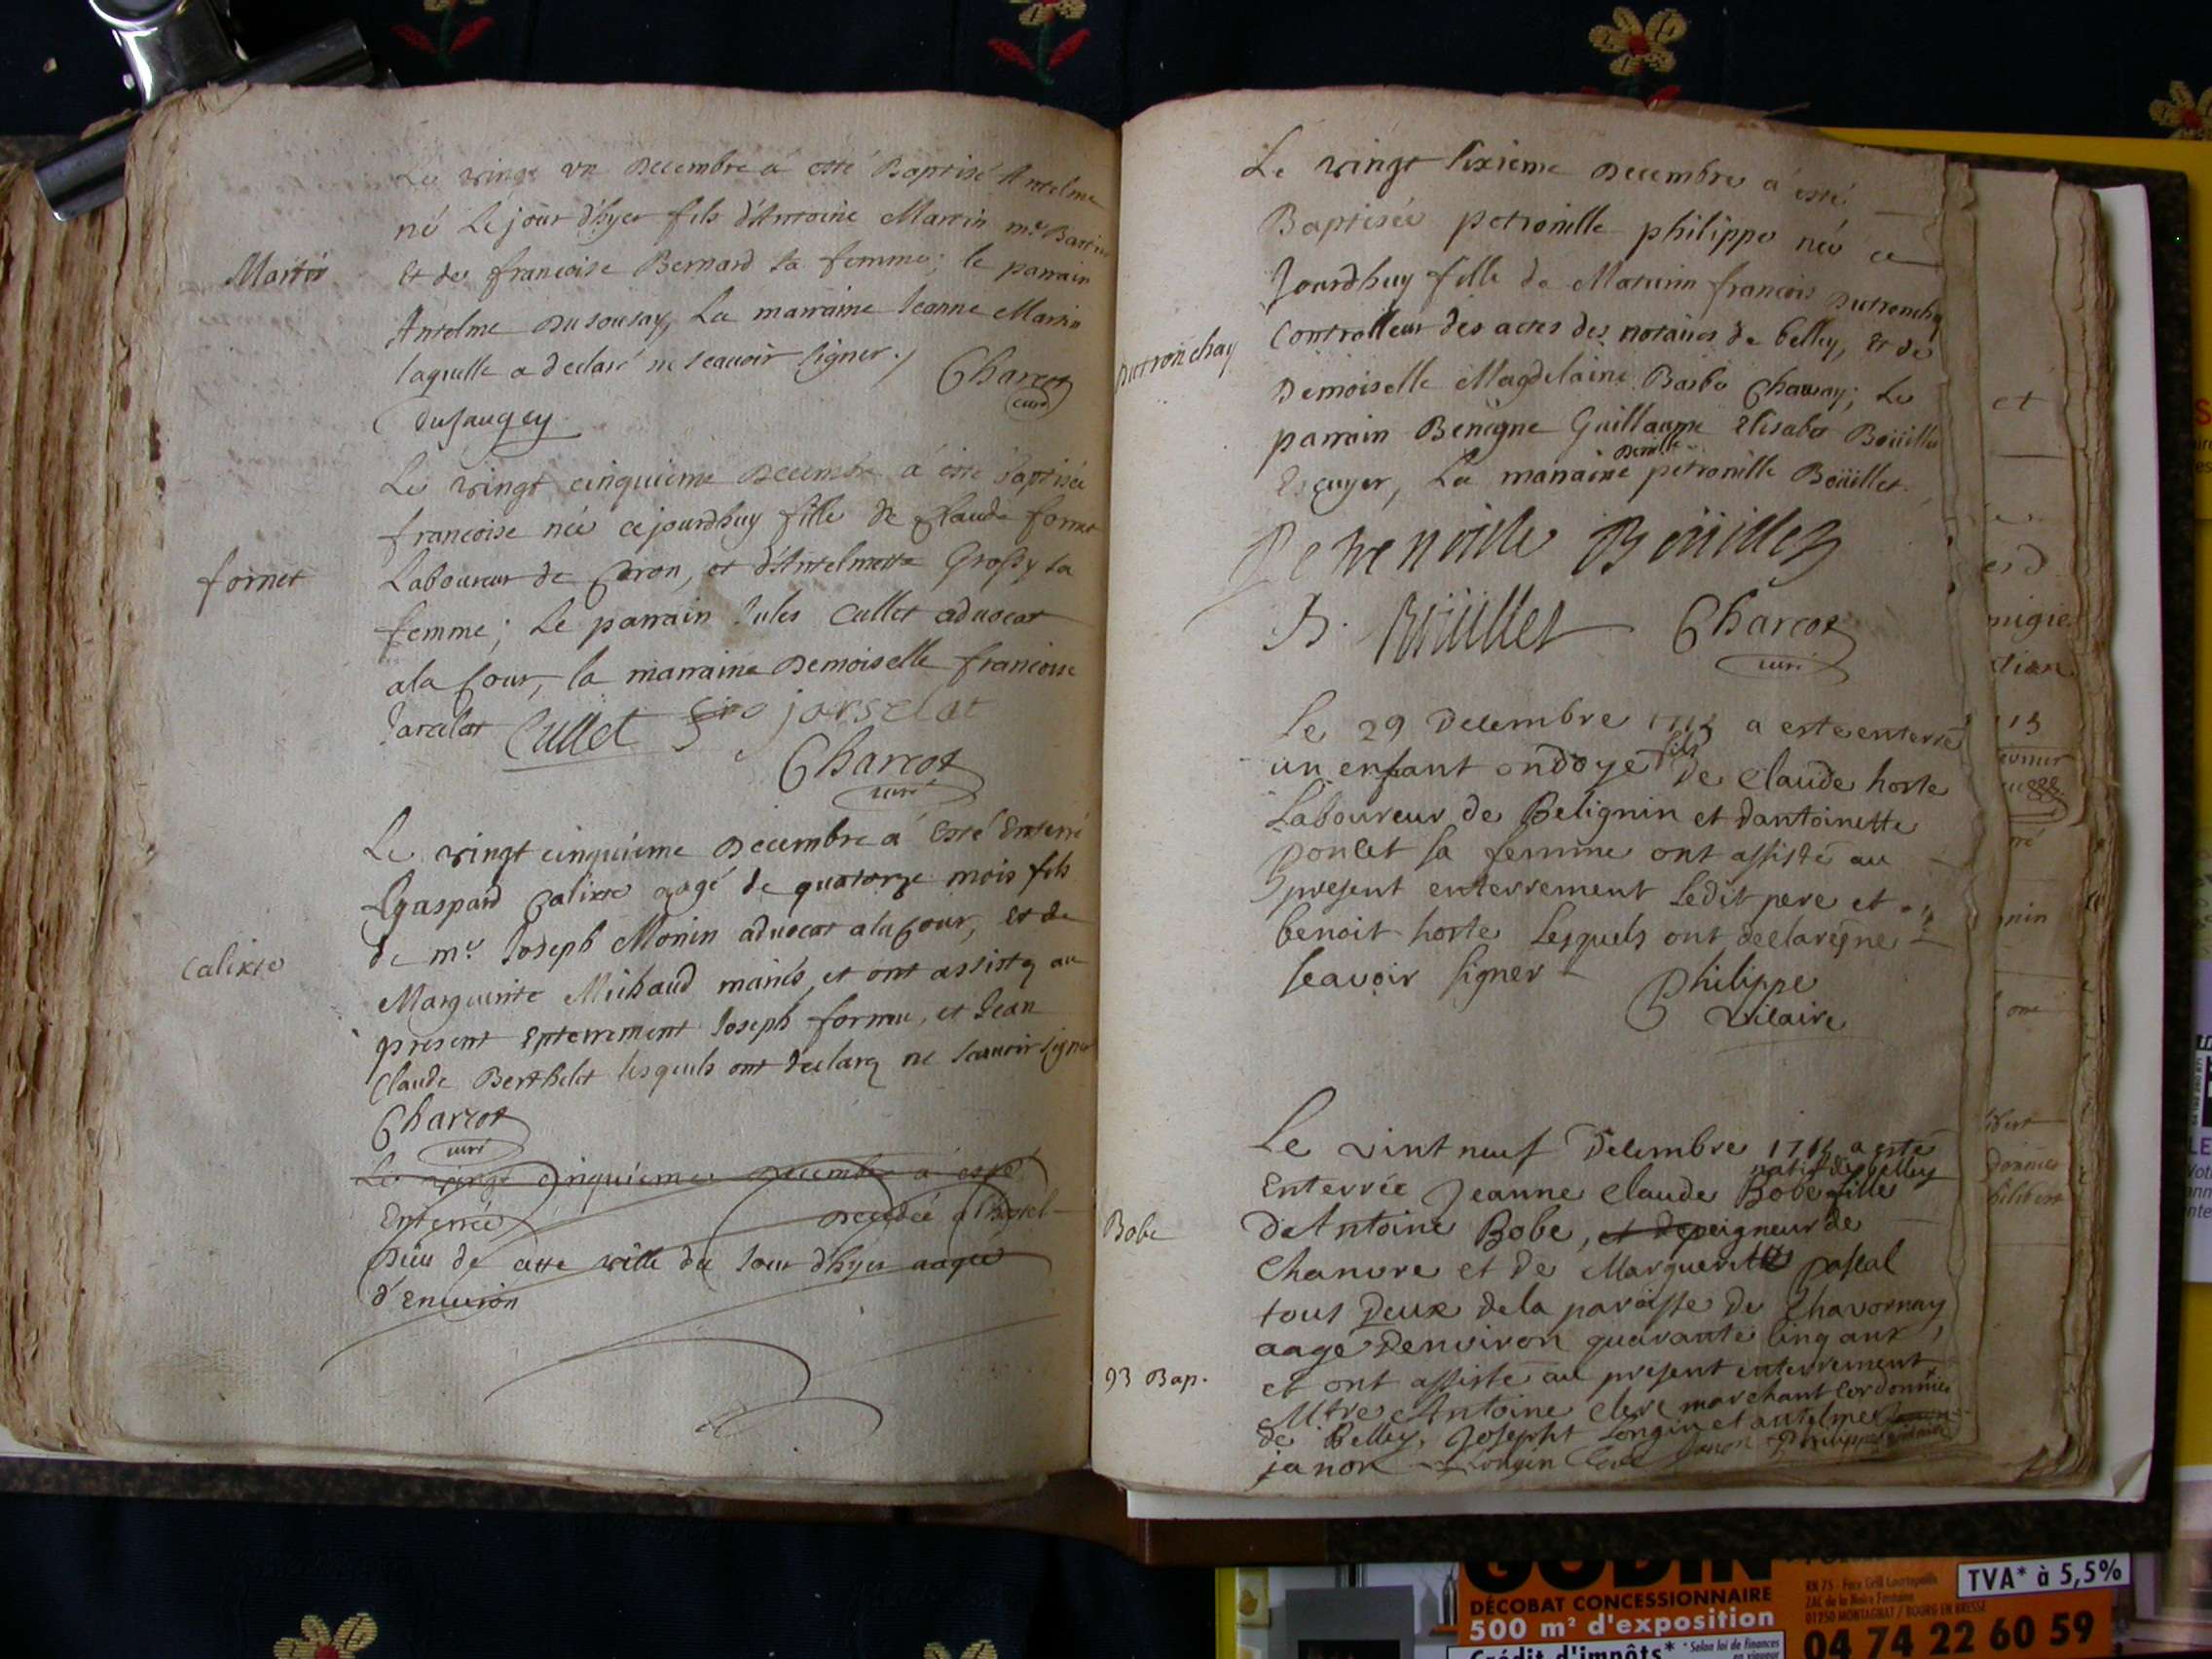 Le vingt un Decembre a esté Baptisé Antelme
né Le jour d'hyer fils d'Antoine Martin me
Martin
Et de francoise Bernard sa femme; le parrain
Antelme Dusousay, La marraine Jeanne Martin
laquelle a declaré ne scauoir signer./
Charcot
curé
dusaugey
Le vingt cinquieme Decembre a esté baptisée
francoise née cejourdhuy fille de Claude fornet
fornet
Laboureur de Coron, et d'Antelmette Grossy sa
femme; Le parrain Jules Cullet aduocat
ala Cour, la marraine Demoiselle francoise
Jarcelat Cullet jarselat
Charcot
curé
Le vingt cinquieme Decembre a Esté Enterré
gaspard Calixte agé de quatorze mois fils
de mr. Joseph Monin aduocat ala Cour, et de
Calixte
Marguerite Michaud mariés, et ont assisté au
present Enterrement Joseph et Jean
Claude Berthelet lesquels ont declaré ne scauoir signer
Charcot
curé
Le vingt cinquieme decembre a esté
Enterrée decedée a l'hotel
Dieu de cette ville du Jour d'hyer aagée
d'Enuiron
Le vingt sixieme Decembre a esté
Baptisée petronille philippe née ce
Jourdhuy fille de Maturin francois Dutronchay
Dutronchay
Controlleur des actes des notaires de belley, Et de
Demoiselle Magdelaine Barbe Chauuay; Le
parrain Benigne Guillaume Elisabet Boüillet
Escuyer, La marraine Demlle petronille Boüillet.
Petrenoille Boüillet
B. Boüillet Charcot
curé
Le 29 Decembre a esté enterré
un enfant ondoyé fils de Claude horte
Laboureur de Belignin et dantoinette
poncet sa femme ont assisté au
present enterrement Ledit pere et
benoit horte Lesquels ont declaré ne
scavoir signer
Philippe
vicaire
Le vint neuf Decembre a esté
natif de belley
Enterrée Jeanne Claude Bobe fille
Bobe
de Antoine Bobe, et de peigneur de
Chanvre et de Marguerite pascal
tous Deux de la paroisse de Chavornay
aagé Denviron quarante cinq ans,
93 Bap.
et ont assisté au present enterrement
Mtre Antoine Clerc marchant Cordonnier
de Belley, Josepht Longin et antelme
janon Longin Clerc Janon Philippe vicaire
et
GODIN
DÉCOBAT CONCESSIONNAIRE
500 m² d'exposition
Crédit d'impôts* * Selon loi de finances
RN 75 - Face Grill Courtepaille
ZAC de la Noire Fontaine
01250 MONTAGNAT / BOURG EN BRESSE
TVA* à 5,5%
04 74 22 60 59